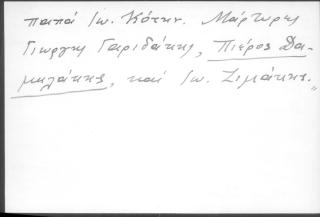 παπᾶ Ἰω. Κότην. Μάρτυρες
Γιώργης Γαριδάκης, Πιέρος Δα-
μηλάκης, καὶ Ἰω. Σιμάκης."